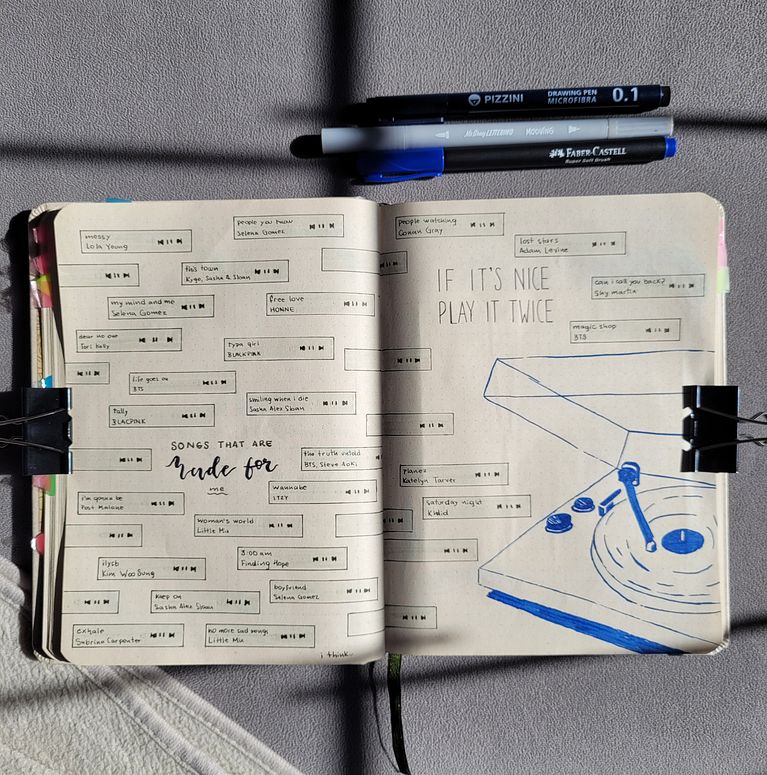 PIZZINI DRAWING PEN MICROFIBRA 0.1
MOOVING
FABER-CASTELL
Super Soft Brush
messy
Lola Young
people you know
Selena Gomez
this town
Kygo, Sasha & Sloan
my mind and me
Selena Gomez
free love
HONNE
dear no one
Tori Kelly
typa girl
BLACKPINK
life goes on
BTS
smiling when i die
Sasha Alex Sloan
tally
BLACPINK
SONGS THAT ARE
made for
me
the truth untold
BTS, Steve Aoki
i'm gonna be
Post Malone
wannabe
ITZY
woman's world
Little Mix
3:00 am
Finding Hope
ilysb
Kim Woo Sung
boyfriend
Selena Gomez
keep on
Sasha Alex Sloan
exhale
Sabrina Carpenter
no more sad songs
Little Mix
i think..
people watching
Conan Gray
lost stars
Adam Levine
IF IT'S NICE
PLAY IT TWICE
can i call you back?
Shy martin
magic shop
BTS
planez
Katelyn Tarver
saturday night
Khalid